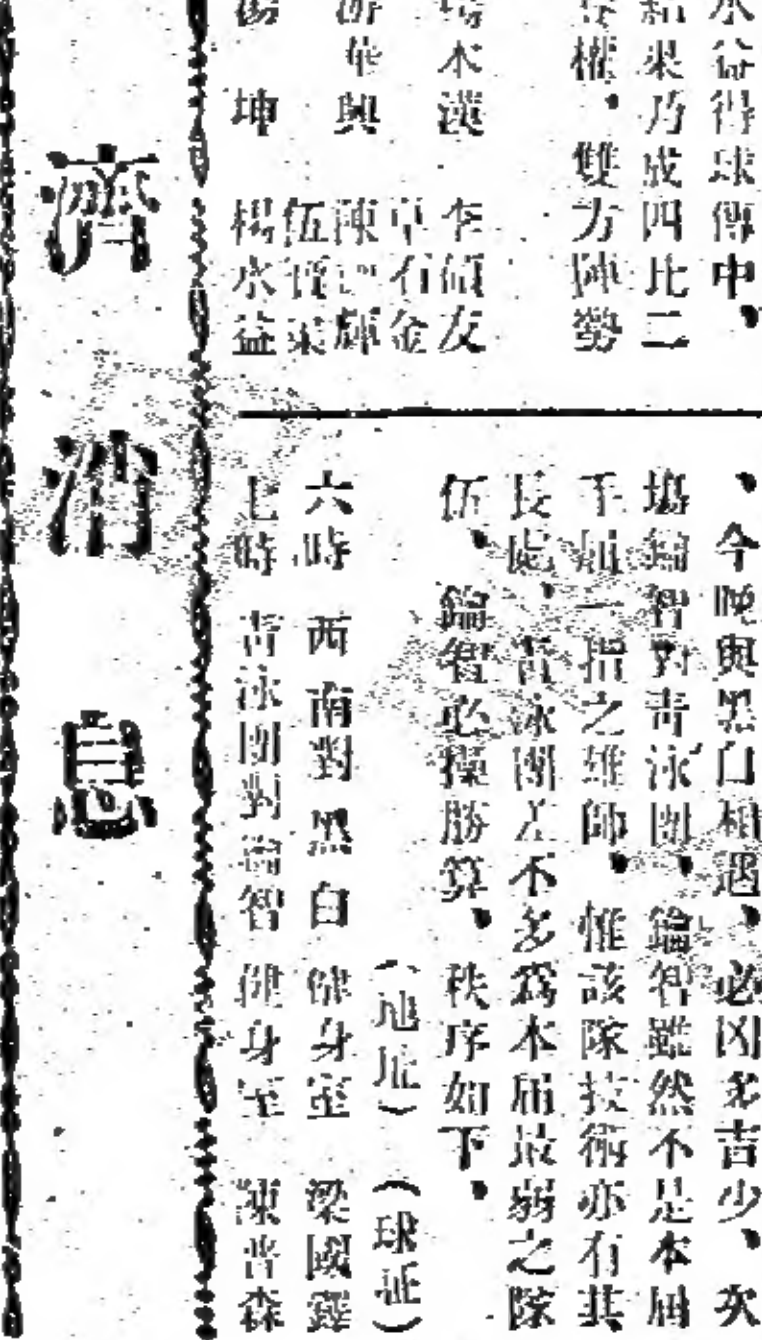 水益得球傳中、
結果乃成四比二
權、雙方陣勢
木漢 李碩友
卓石金
華興 陳 輝
伍
坤 楊水益
、今晚與黑白相遇、必凶多吉少、次
場錀智對青泳團、錀智雖然不是本屆
手屈一指之雄師、惟該隊技術亦有其
長處、青泳團差不多為本屆最弱之隊
伍、錀智必操勝算、秩序如下、
(地址)(球証)
六時 西南對黑白 健身室 梁國
七時 青泳團對錀智 健身室 陳普森
濟消息